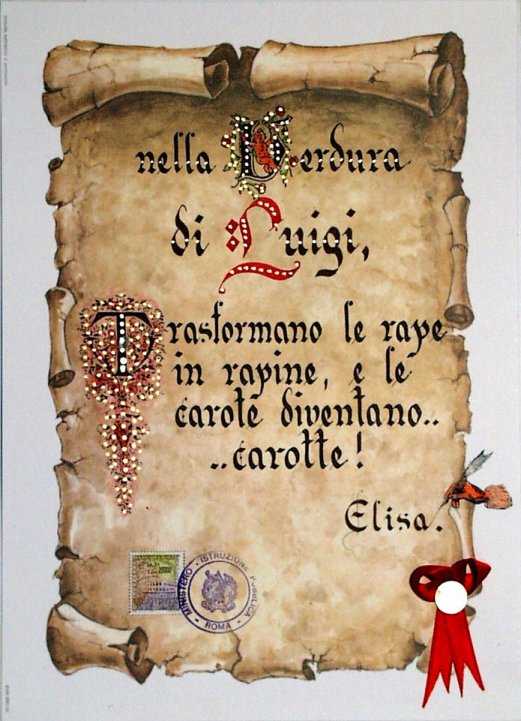 nella Verdura
di Luigi,
Trasformano le rape
in rapine, e le
carote diventano..
..carotte!
Elisa.
MINISTERO · ISTRUZIONE PUBBLICA
· ROMA ·